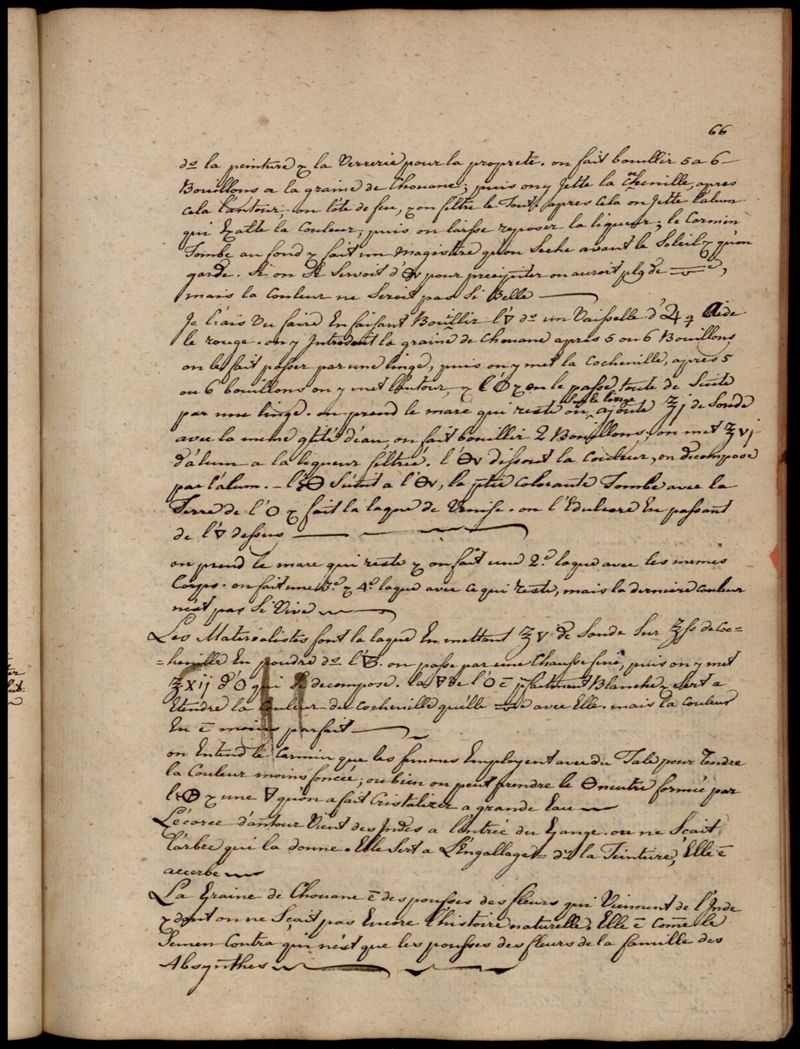 66
ds la peinture & la Verrerie pour la propreté. on fait bouillir 5 a 6
Bouillons a la graine de Chouane; puis on y Jette la Cochenille, apres
cela l'autour, on l'ôte de feu, & on filtre le Tout, apres cela on Jette l'alun
qui Exalte la Couleur, puis on laisse reposer la liqueur, le Carmin
Tombe au fond & fait un magistere qu'on Seche avant le Soleil & qu'on
garde. Si on Se Servoit d' pour precipiter on auroit plg de
mais la Couleur ne Seroit pas Si Belle
Je l'ais Vu faire En faisant Bouillir l'🜄 ds un Vaisselle d'♃ aide
le rouge. on y Introduit la graine de Chouane apres 5 ou 6 Bouillons
on les fait passer par une linge, puis on y met la Cochenille, apres 5
ou 6 bouillons on y met l'autour, & l'O & on le passe toute de Suite
par une linge. on prend le marc qui reste sur le linge on ajoute ʒj de Soude
avec la meme qtité d'eau, on fait bouillir 2 Bouillons, on met ʒvj
d'alum a la liqueur filtrée. l' dissout la Couleur, on decompose
par l'alum. l' S'unit a l', la ptie colorante Tombe avec la
Terre de l'O & fait la laque de Venise. on l'Edulcore En passant
de l'🜄 dessus
on prend le marc qui reste & on fait une 2e laque avec les memes
Corps. on fait une 3e & 4e laque avec ce qui reste, mais la derniere couleur
n'est pas Si Vive
Les Materialistes font la laque En mettant ʒv de Soude Sur ʒss de Coc=
=henille En poudre ds l'. on passe par une Chausse fine, puis on y met
ʒxij d'O qui Se decompose. la de l'O ē pfaitement Blanche & sert a
Etendre la Couleur de Cochenille qu'elle avec Elle. mais la Couleur
En ē moins parfait
on Entend le Carmin que les femmes Employent avec du Talc pour Tendre
la Couleur moins foncée, ou bien on peut prendre le neutre formée par
l' & une qu'on a fait Cristalizer a grande Eau
L'écorce d'autour Vient des Indes a l'entrée du Gange. on ne Sçait
l'arbre qui la donne. Elle Sert a L'Engallage ds la Teinture, Elle ē
acerbe
La Graine de Chouane ē des pousses des fleurs qui Viennent de l'Inde
& dont on ne Sçait pas Encore l'histoire naturelle, Elle ē come le
Semen Contra qui n'est que les pousses des fleurs de la famille des
Absynthes